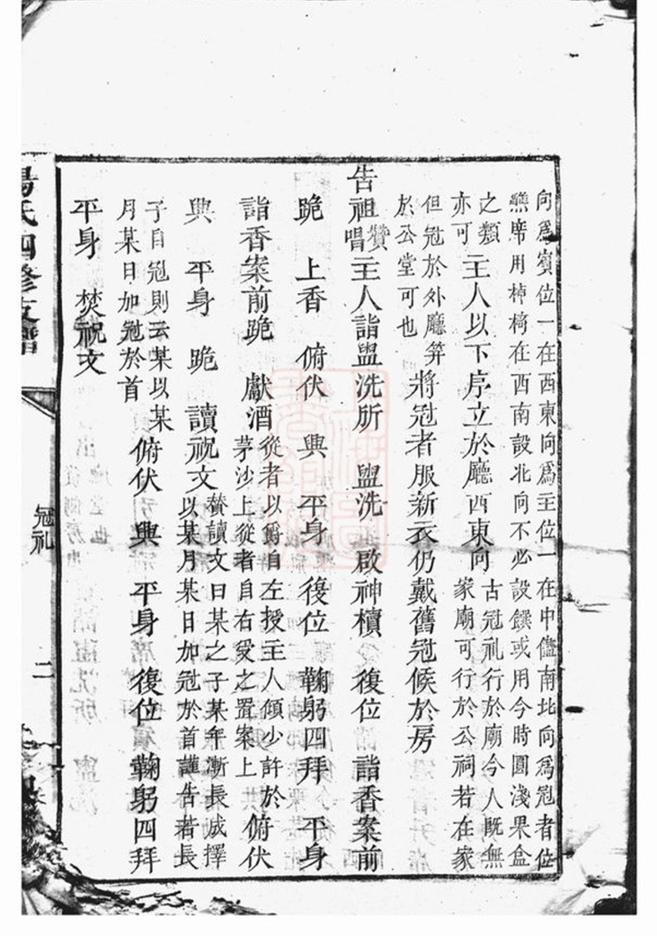 向爲賓位一在西東向爲主位一在中儘南北向爲冠者位
無席用棹椅在西南設北向不必設饌或用今時圓淺果盒
之類主人以下序立於廳西東向古冠礼行於廟今人既無
亦可家廟可行於公祠若在家
但冠於外廳筭
於公堂可也將冠者服新衣仍戴舊冠候於房
告祖贊唱主人詣盥洗所 盥洗 啟神櫝 復位 詣香案前
跪 上香 俯伏 興 平身 復位 鞠躬四拜 平身
詣香案前跪 獻酒從者以爵自左授主人傾少許於
茅沙上從者自右受之置案上俯伏
興 平身 跪 讀祝文贊讀文曰某之子某年漸長成擇
以某月某日加冠於首謹告若長
子自冠則云某以某
月某日加冠於首俯伏 興 平身 復位 鞠躬四拜
平身 焚祝文
楊氏四修支譜
冠礼
二